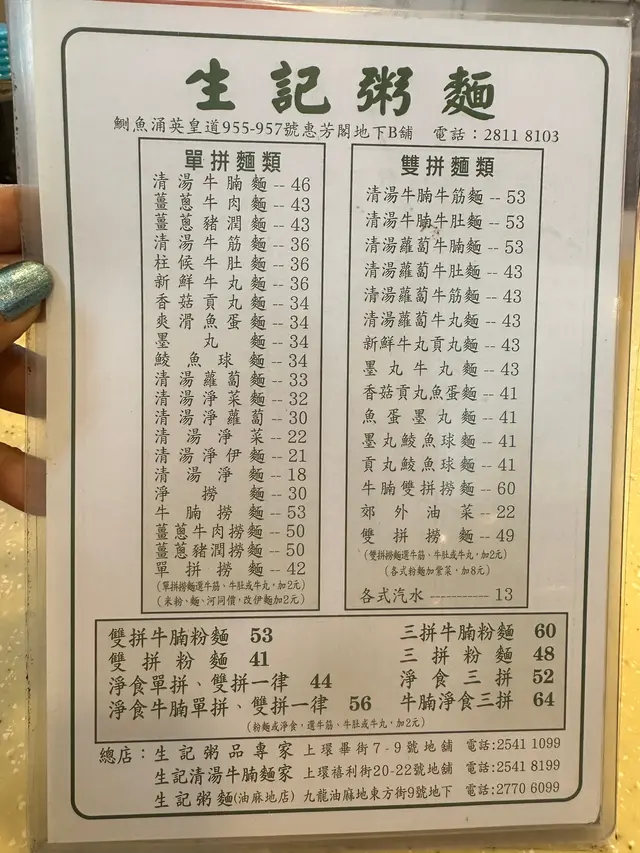 生記粥麵
鰂魚涌英皇道955-957號惠芳閣地下B舖 電話：2811 8103
單拼麵類
清湯牛腩麵 -- 46
薑蔥牛肉麵 -- 43
薑蔥豬潤麵 -- 43
清湯牛筋麵 -- 36
柱候牛肚麵 -- 36
新鮮牛丸麵 -- 36
香菇貢丸麵 -- 34
爽滑魚蛋麵 -- 34
墨丸麵 -- 34
鯪魚球麵 -- 34
清湯蘿蔔麵 -- 33
清湯淨菜麵 -- 32
清湯淨蘿蔔 -- 30
清湯淨菜 -- 22
清湯淨伊麵 -- 21
清湯淨麵 -- 18
淨撈麵 -- 30
牛腩撈麵 -- 53
薑蔥牛肉撈麵 -- 50
薑蔥豬潤撈麵 -- 50
單拼撈麵 -- 42
(單拼撈麵選牛筋、牛肚或牛丸，加2元)
(米粉、麵、河同價，改伊麵加2元)
雙拼麵類
清湯牛腩牛筋麵 -- 53
清湯牛腩牛肚麵 -- 53
清湯蘿蔔牛腩麵 -- 53
清湯蘿蔔牛肚麵 -- 43
清湯蘿蔔牛筋麵 -- 43
清湯蘿蔔牛丸麵 -- 43
新鮮牛丸貢丸麵 -- 43
墨丸牛丸麵 -- 43
香菇貢丸魚蛋麵 -- 41
魚蛋墨丸麵 -- 41
墨丸鯪魚球麵 -- 41
貢丸鯪魚球麵 -- 41
牛腩雙拼撈麵 -- 60
郊外油菜 -- 22
雙拼撈麵 -- 49
(雙拼撈麵選牛筋、牛肚或牛丸，加2元)
(各式粉麵加紫菜，加8元)
各式汽水 ----------- 13
雙拼牛腩粉麵 53
雙拼粉麵 41
淨食單拼、雙拼一律 44
淨食牛腩單拼、雙拼一律 56
三拼牛腩粉麵 60
三拼粉麵 48
淨食三拼 52
牛腩淨食三拼 64
(粉麵或淨食，選牛筋、牛肚或牛丸，加2元)
總店：生記粥品專家 上環畢街7-9號地舖 電話:2541 1099
生記清湯牛腩麵家 上環禧利街20-22號地舖 電話:2541 8199
生記粥麵(油麻地店) 九龍油麻地東方街9號地下 電話:2770 6099